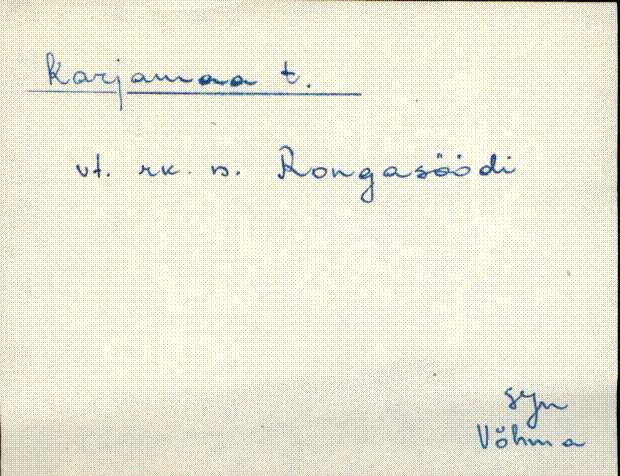 Karjamaa t.
vt. rk. n. Rongasöödi
syn
Võhma